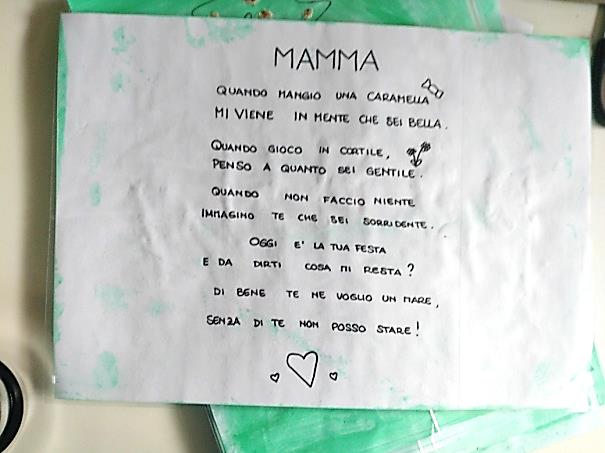 MAMMA
QUANDO MANGIO UNA CARAMELLA
MI VIENE IN MENTE CHE SEI BELLA.
QUANDO GIOCO IN CORTILE,
PENSO A QUANTO SEI GENTILE.
QUANDO NON FACCIO NIENTE
IMMAGINO TE CHE SEI SORRIDENTE.
OGGI E' LA TUA FESTA
E DA DIRTI COSA MI RESTA?
DI BENE TE NE VOGLIO UN MARE,
SENZA DI TE NON POSSO STARE!